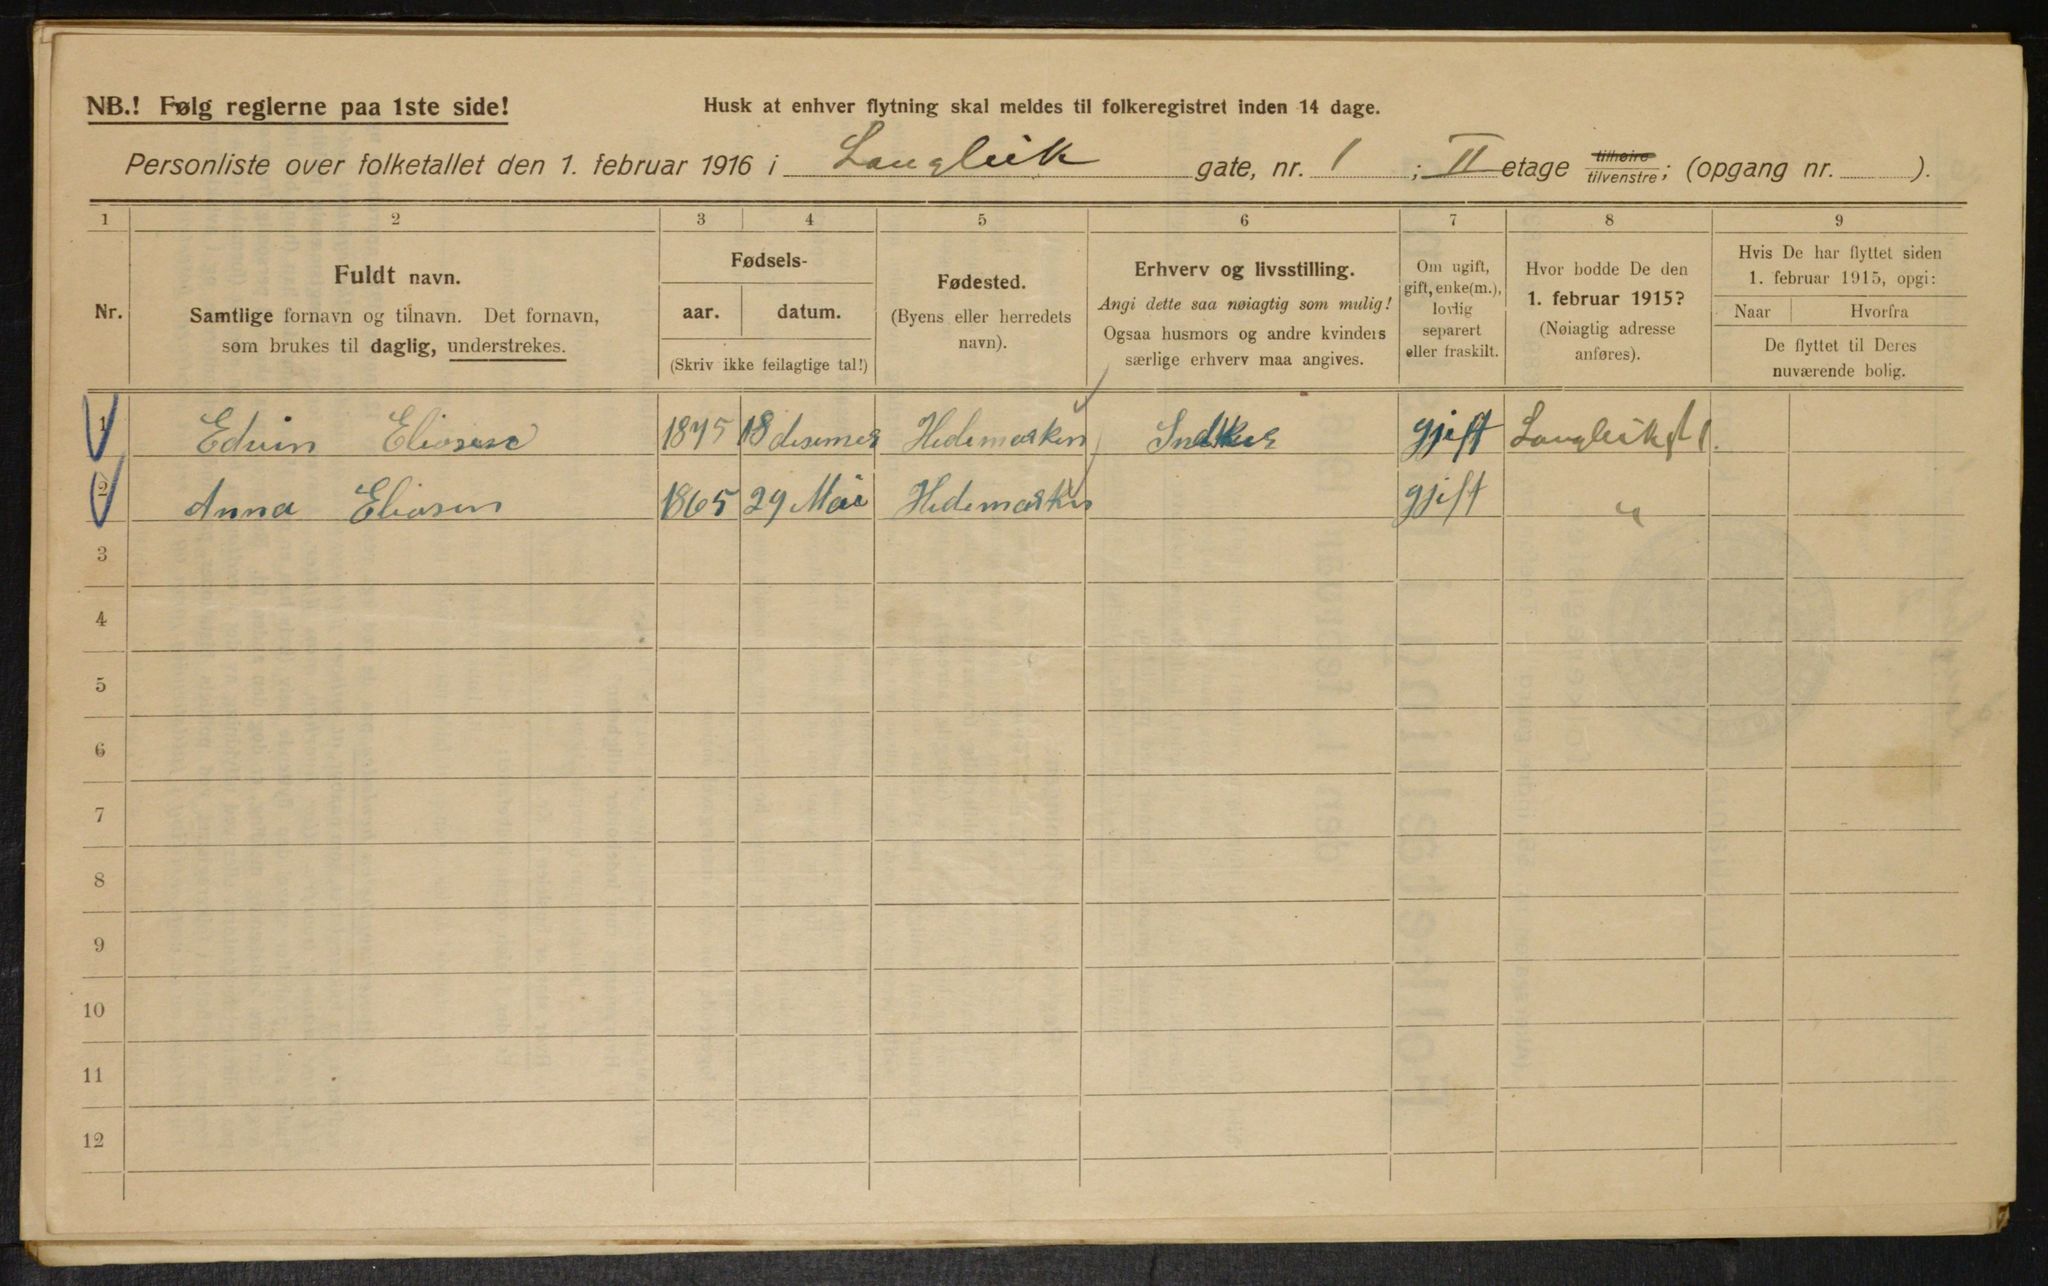 NB.! Følg reglerne paa 1ste side!
Husk at enhver flytning skal meldes til folkeregistret inden 14 dage.
Personliste over folketallet den 1. februar 1916 i Langleik gate, nr. 1 ; II etage tilhøire tilvenstre; (opgang nr. ).
1 2 3 4 5 6 7 8 9
Nr.
Fuldt navn.
Samtlige fornavn og tilnavn. Det fornavn,
som brukes til daglig, understrekes.
Fødsels-
aar. datum.
(Skriv ikke feilagtige tal!)
Fødested.
(Byens eller herredets
navn).
Erhverv og livsstilling.
Angi dette saa nøiagtig som mulig!
Ogsaa husmors og andre kvinders
særlige erhverv maa angives.
Om ugift,
gift, enke(m.),
lovlig
separert
eller fraskilt.
Hvor bodde De den
1. februar 1915?
(Nøiagtig adresse
anføres).
Hvis De har flyttet siden
1. februar 1915, opgi:
Naar Hvorfra
De flyttet til Deres
nuværende bolig.
1 Edvin Eliasen 1875 18 desember Hedemarken gjift Langleikgt 1.
2 Anna Eliasen 1865 29 Mai Hedemarken gjift "
3
4
5
6
7
8
9
10
11
12